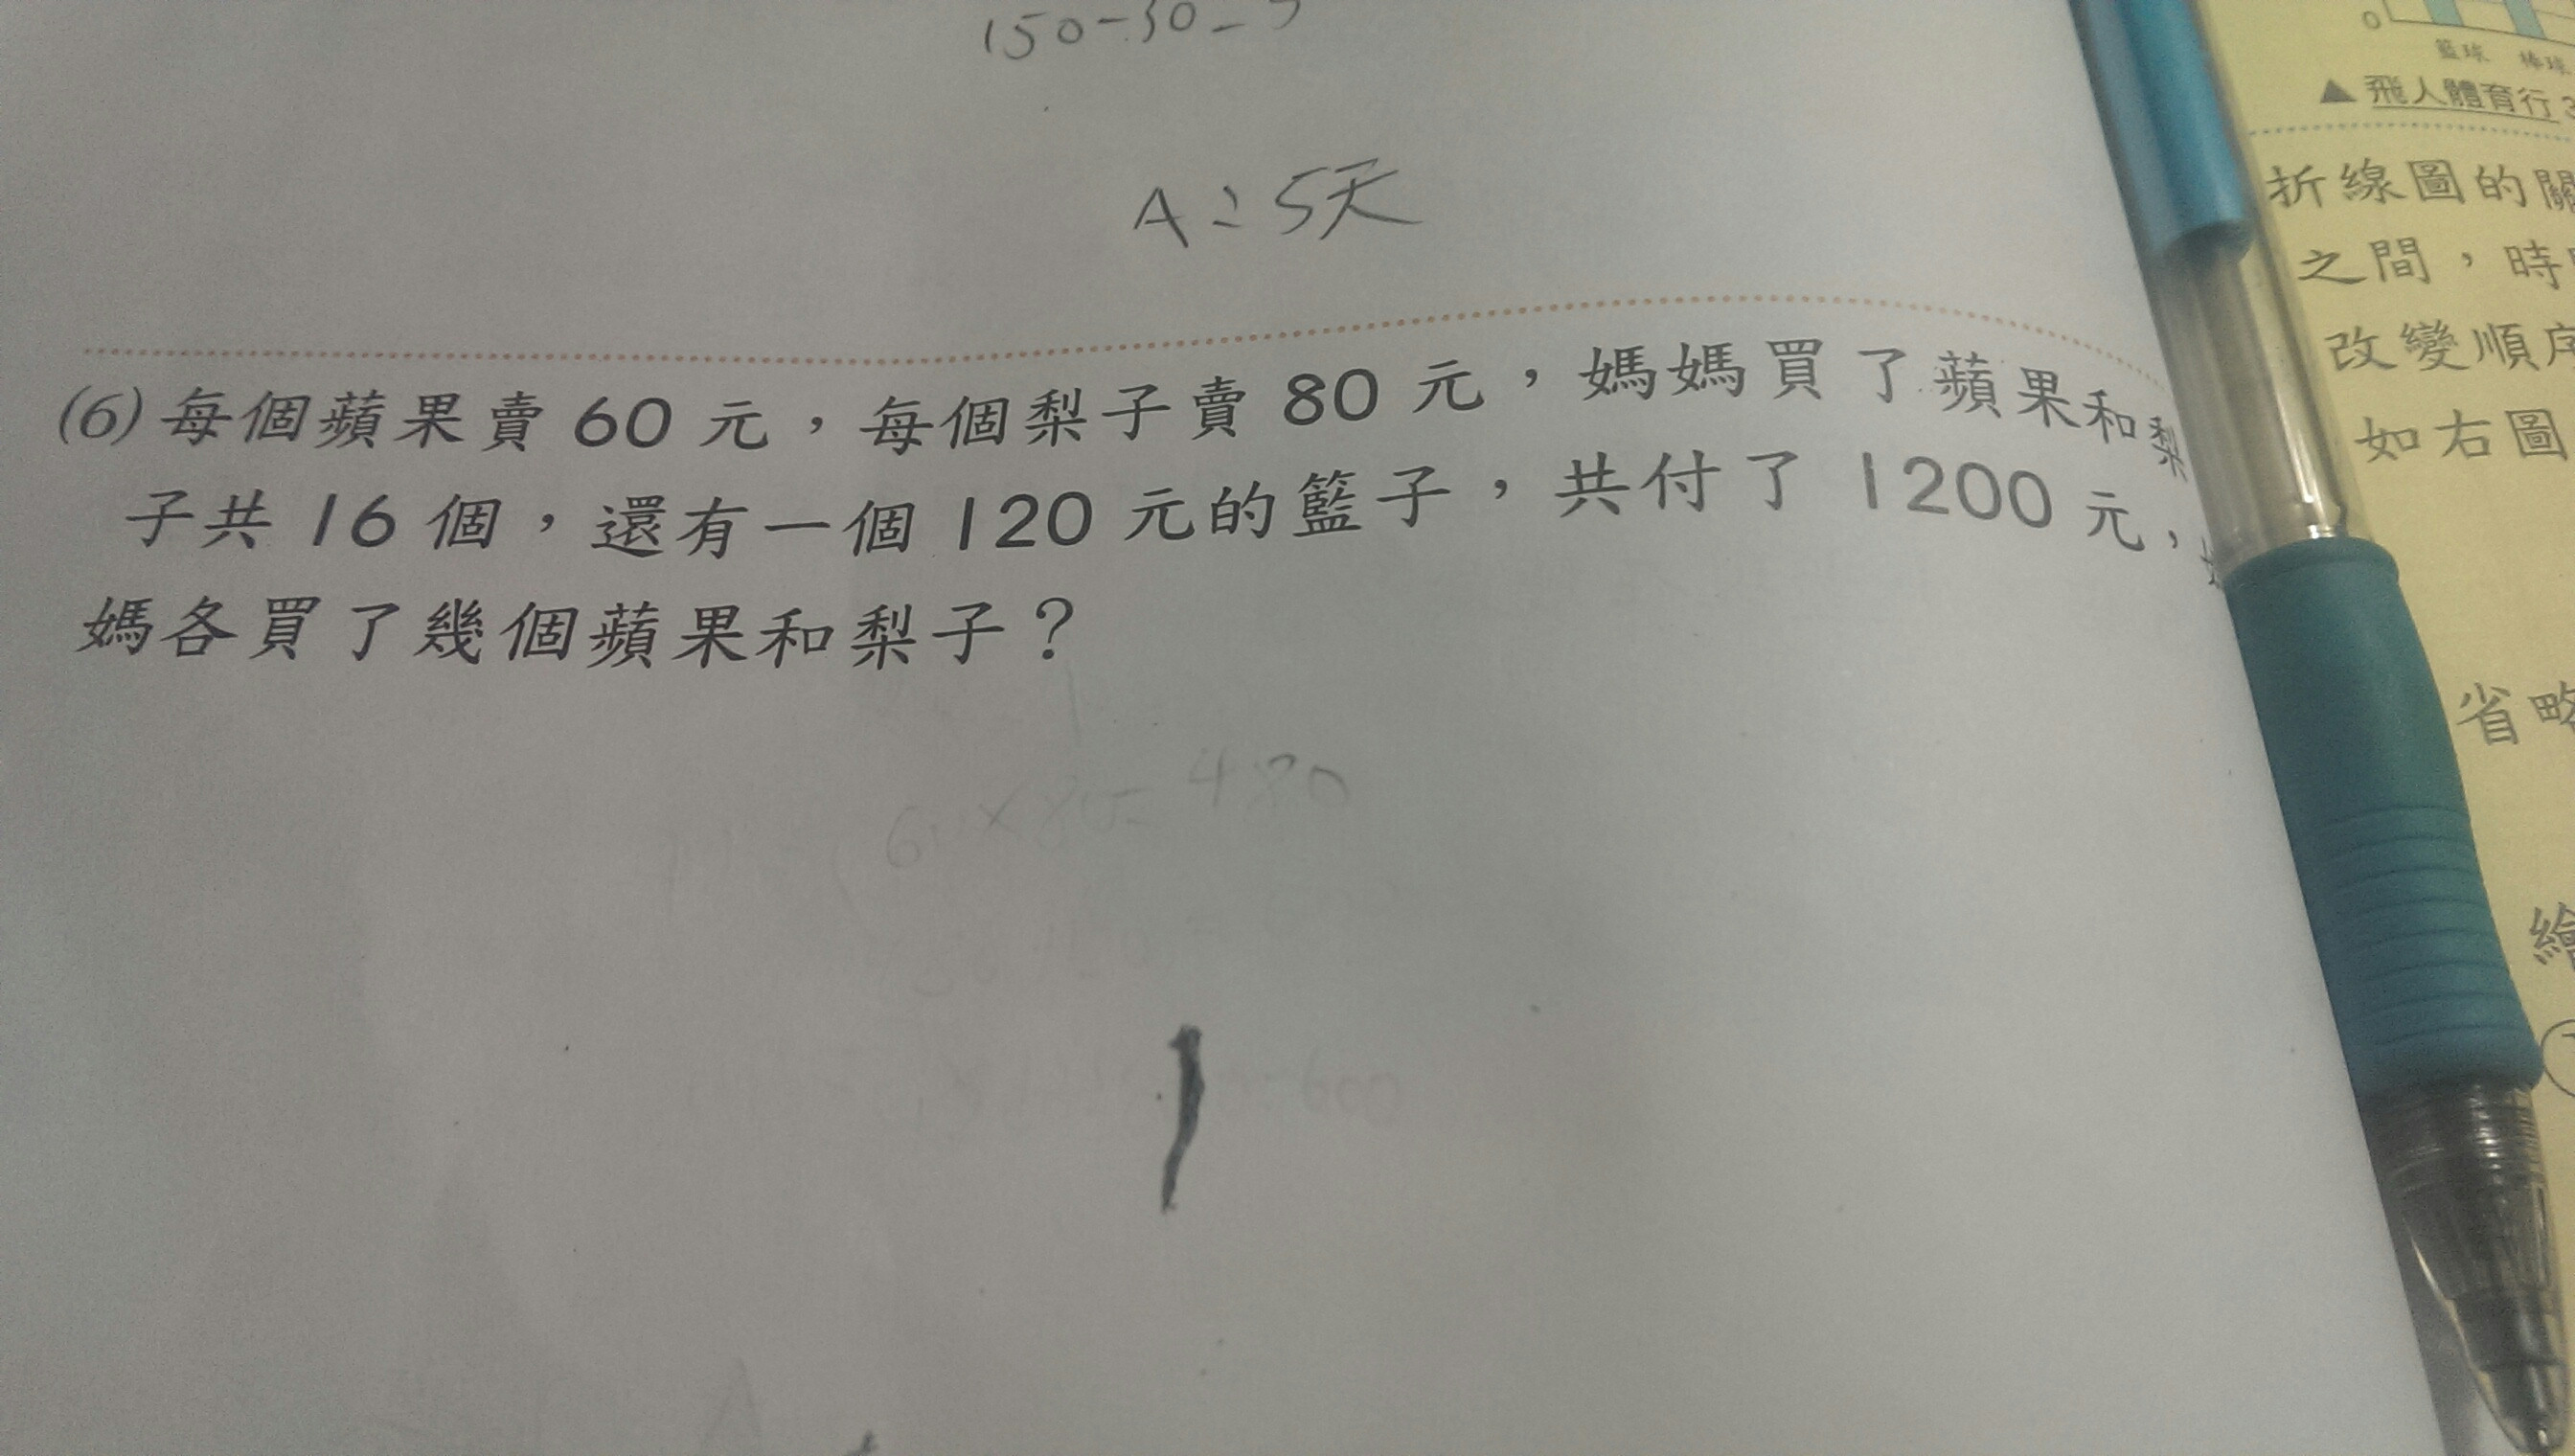 150-30=
A=5天
(6)每個蘋果賣 60 元，每個梨子賣 80 元，媽媽買了蘋果和梨
子共 16 個，還有一個 120 元的籃子，共付了 1200 元，
媽各買了幾個蘋果和梨子？
6 ×80= 480
600
0
籃球 棒球
▲飛人體育行
折線圖的關
之間，時
改變順序
如右圖
省略
繪